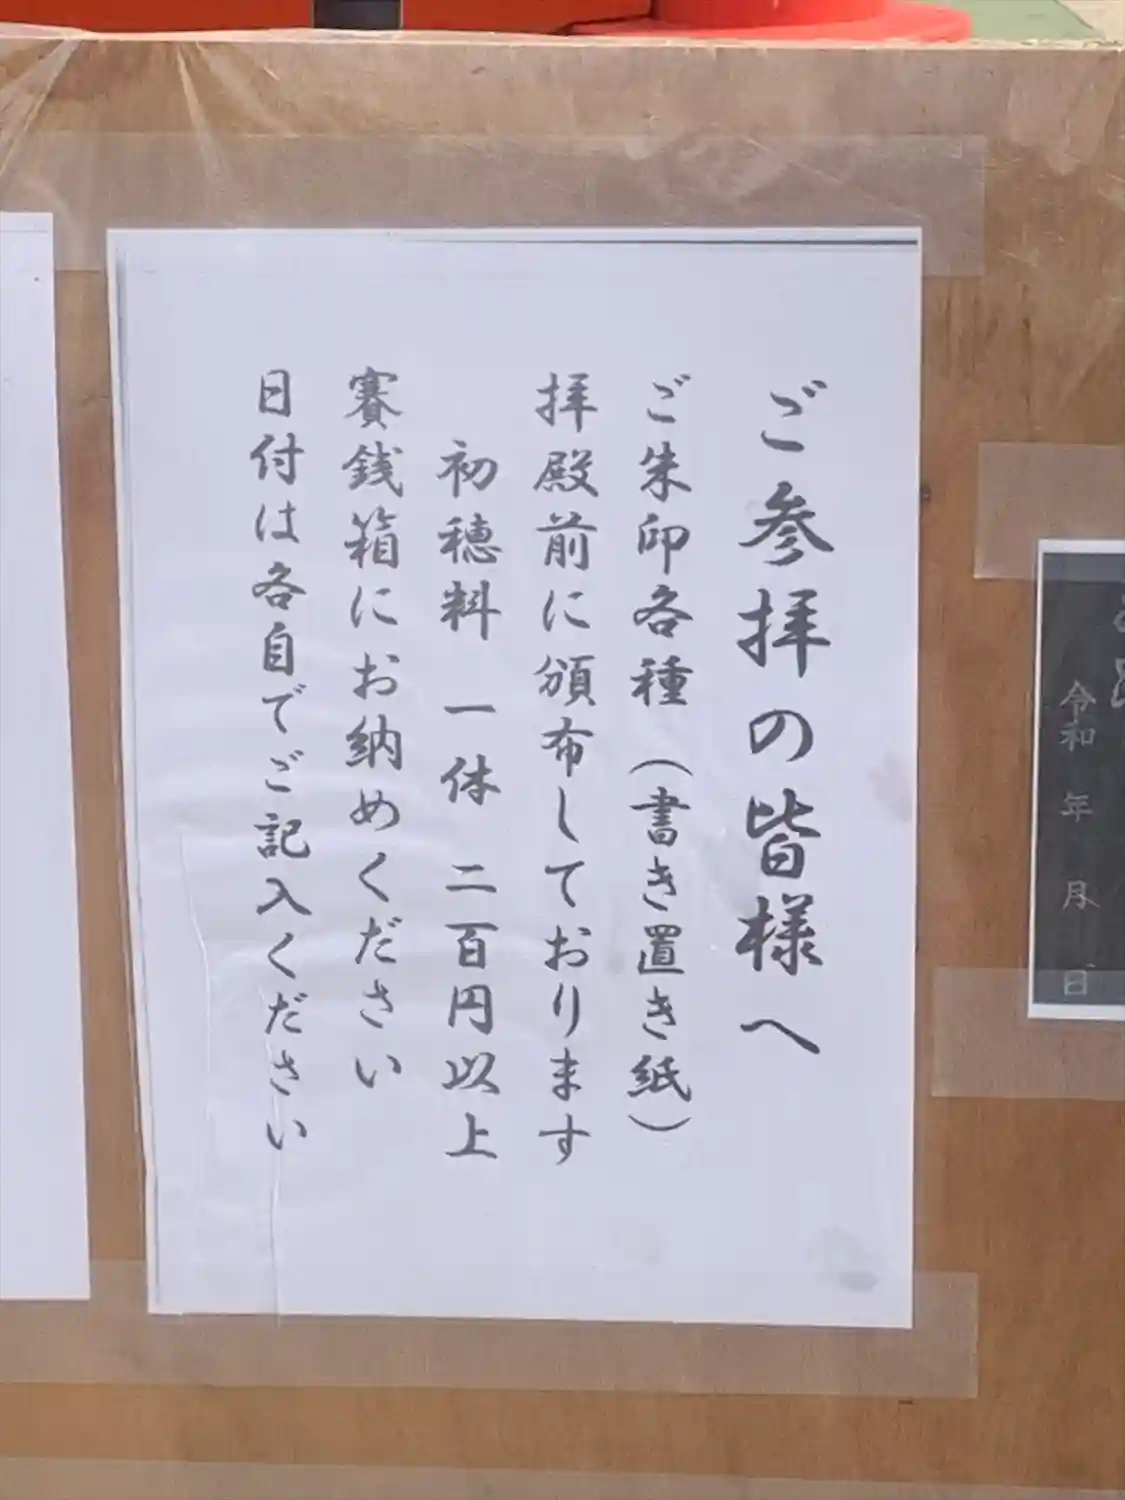 ご参拝の皆様へ
ご朱印各種（書き置き紙）
拝殿前に頒布しております
初穂料 一体 二百円以上
賽銭箱にお納めください
日付は各自でご記入ください
令和 年 月 日